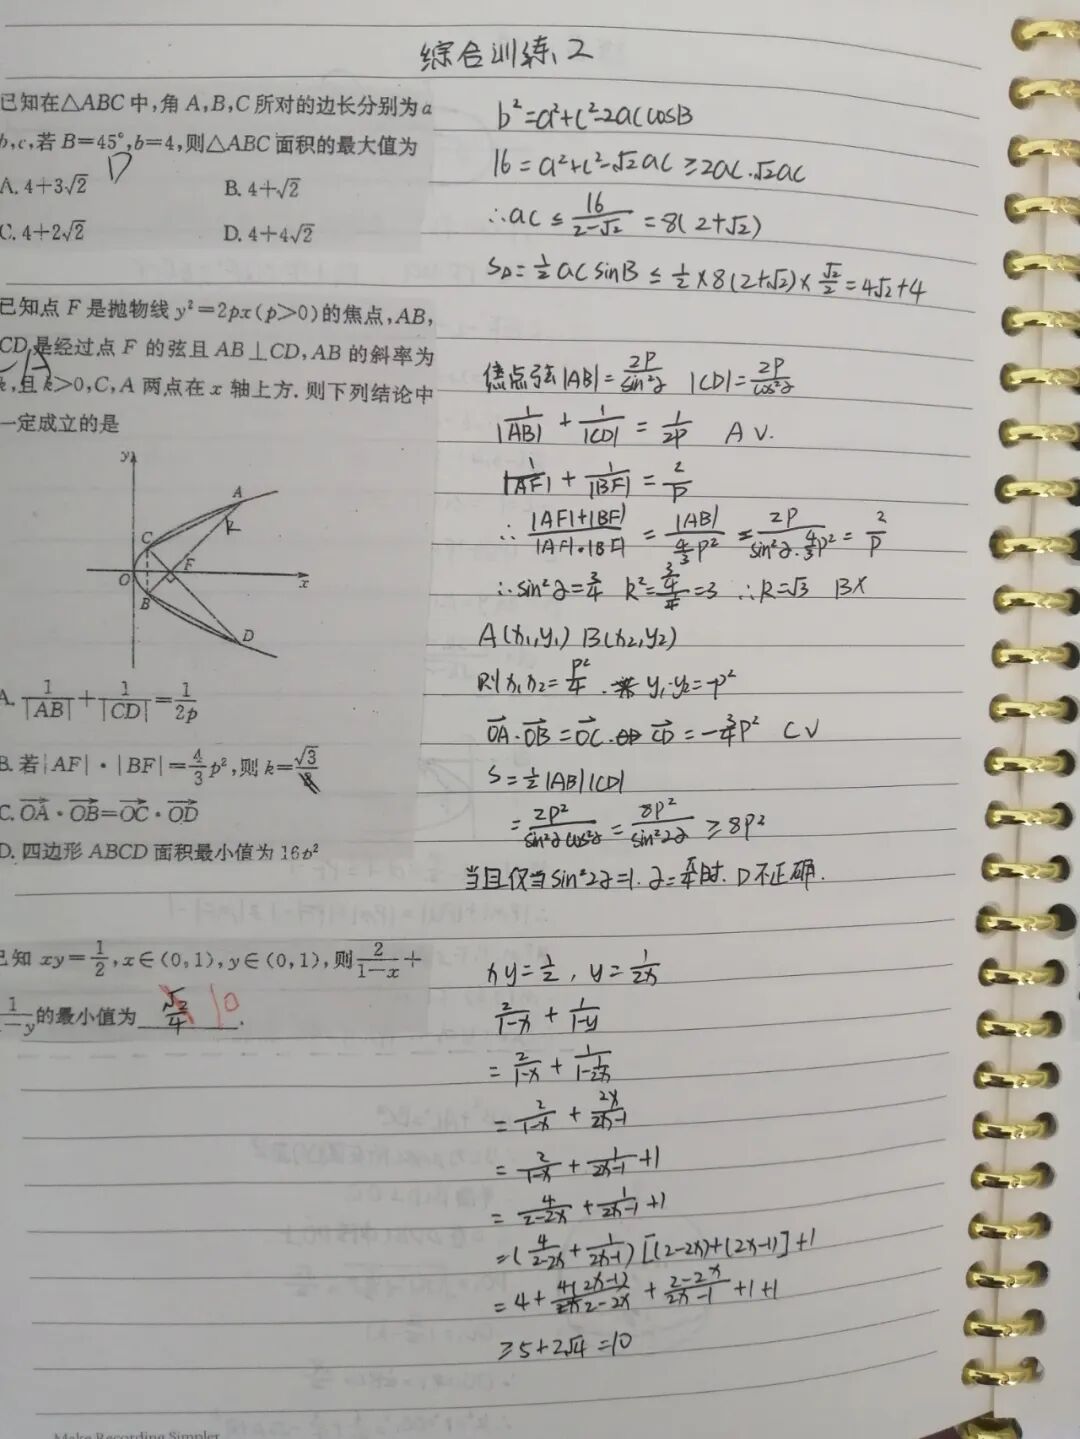 综合训练2
已知在△ABC中,角A,B,C所对的边长分别为a
b,c,若B=45°,b=4,则△ABC面积的最大值为
D
A. 4+3√2 B. 4+√2
C. 4+2√2 D. 4+4√2
b²=a²+c²-2accosB
16=a²+c²-√2ac≥2ac-√2ac
∴ac≤16/(2-√2)=8(2+√2)
S△=½acsinB≤½×8(2+√2)×√2/2=4√2+4
已知点F是抛物线y²=2px(p>0)的焦点,AB,
CD是经过点F的弦且AB⊥CD,AB的斜率为
k,且k>0,C,A两点在x轴上方.则下列结论中
一定成立的是
y A k C O F x B D
A. 1/|AB|+1/|CD|=1/2p
B. 若|AF|·|BF|=4/3p²,则k=√3
C. OA·OB=OC·OD
D. 四边形ABCD面积最小值为16p²
焦点弦|AB|=2P/sin²α |CD|=2P/cos²α
1/|AB|+1/|CD|=1/2P A√.
1/|AF|+1/|BF|=2/P
∴(|AF|+|BF|)/(|AF|·|BF|)=|AB|/(4/3P²)=2P/(sin²α·4/3P²)=2/P
∴sin²α=3/4 k²=(3/4)/(1/4)=3 ∴k=√3 B×
A(x₁,y₁) B(x₂,y₂)
则x₁x₂=P²/4. y₁·y₂=-p²
OA·OB=OC·OD=-3/4P² C√
S=½|AB||CD|
=2P²/(sin²αcos²α)=8P²/sin²2α≥8P²
当且仅当sin²2α=1.α=π/4时. D不正确.
已知xy=1/2,x∈(0,1),y∈(0,1),则2/(1-x)+
1/(1-y)的最小值为 √2/4 10 .
xy=½, y=1/2x
2/(1-x)+1/(1-y)
=2/(1-x)+1/(1-1/2x)
=2/(1-x)+2x/(2x-1)
=2/(1-x)+1/(2x-1)+1
=4/(2-2x)+1/(2x-1)+1
=(4/(2-2x)+1/(2x-1))[(2-2x)+(2x-1)]+1
=4+4(2x-1)/(2-2x)+(2-2x)/(2x-1)+1+1
≥5+2√4=10
Make Recording Simpler